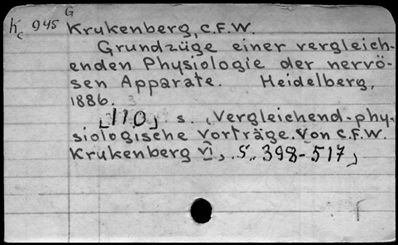 G
Kc 945 Krukenberg, C.F.W.
Grundzüge einer vergleich-
enden Physiologie der nervö-
sen Apparate. Heidelberg,
1886. 3
[110] s. (Vergleichend-phy-
siologische Vorträge. Von C.F.W.
Krukenberg VI, S. 398-517)